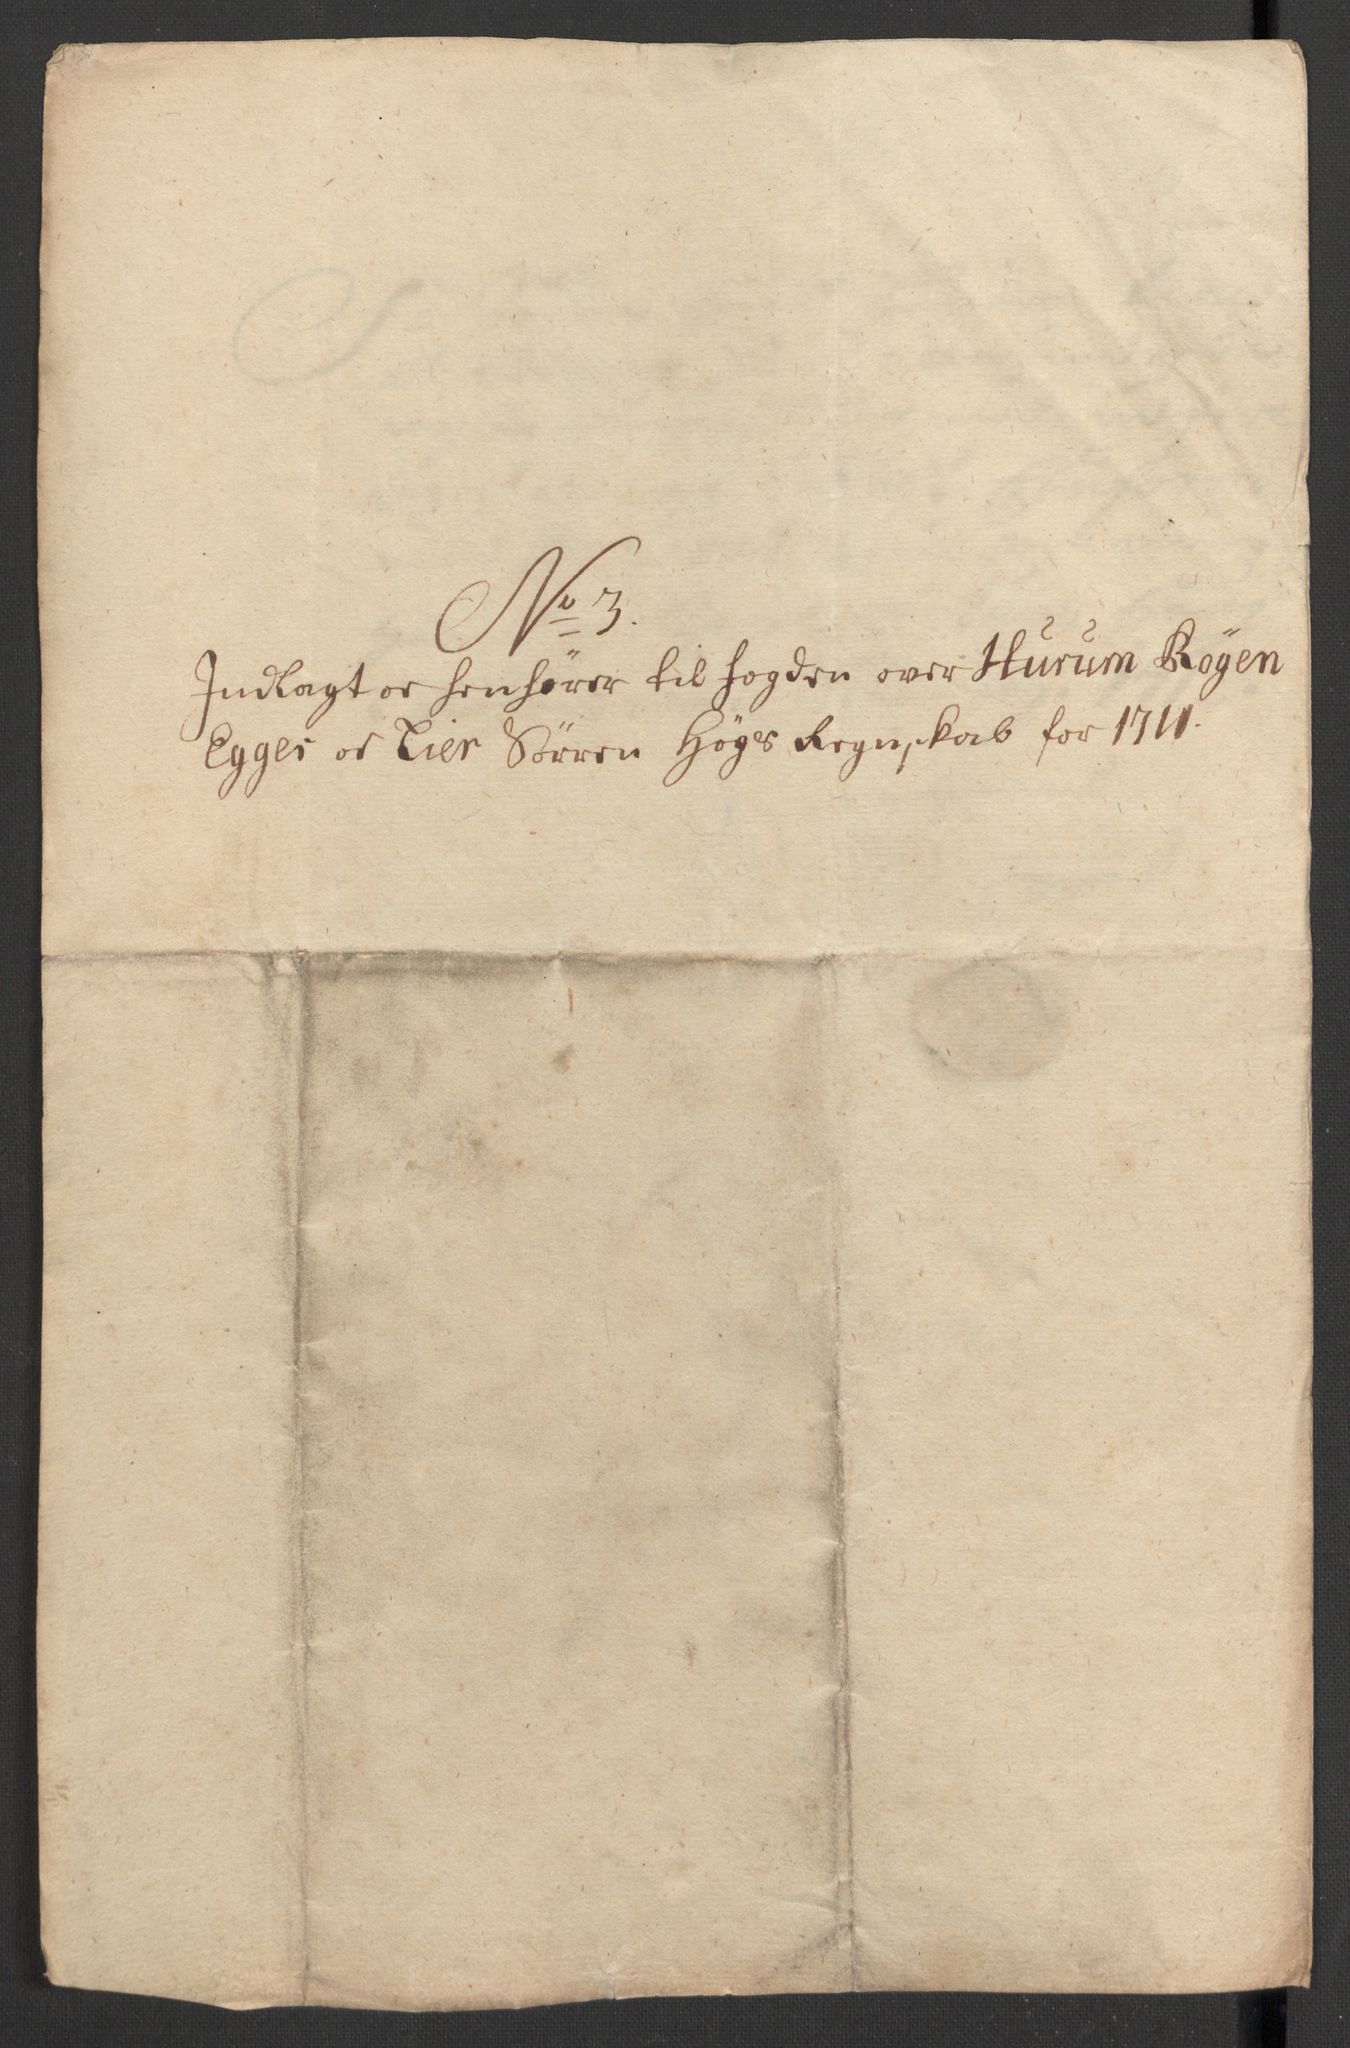 No 3.
Indlagt oc henhører til fogden over Hurum Røgen
Egger oc Lier Sørren Høys Regnskab for 1711.